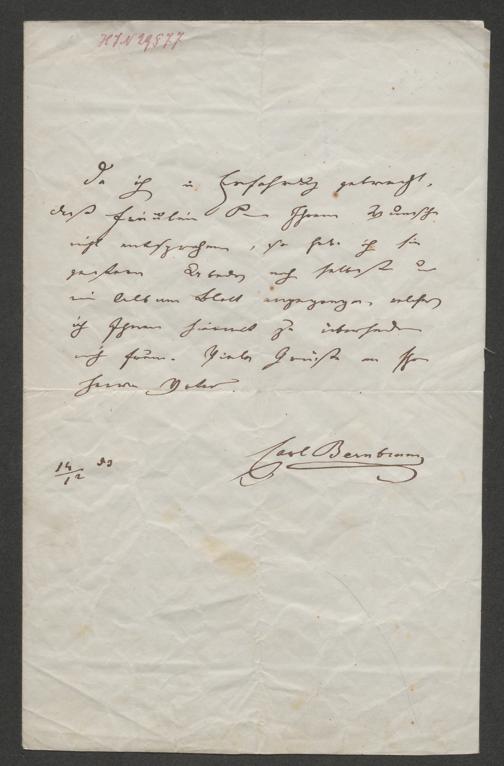 HIN 29577
Da ich in Erfahrung gebracht,
daß Fräulein P. Ihrem Wunsche
nicht entsprochen, so habe ich sie
gestern Abends noch selbst um
ein Album Blatt angegangen, welches
ich Ihnen hiermit zu übersenden
mich freue. Viele Grüße an Ihren
Herrn Vater.
Carl Bernbrunn
14/12